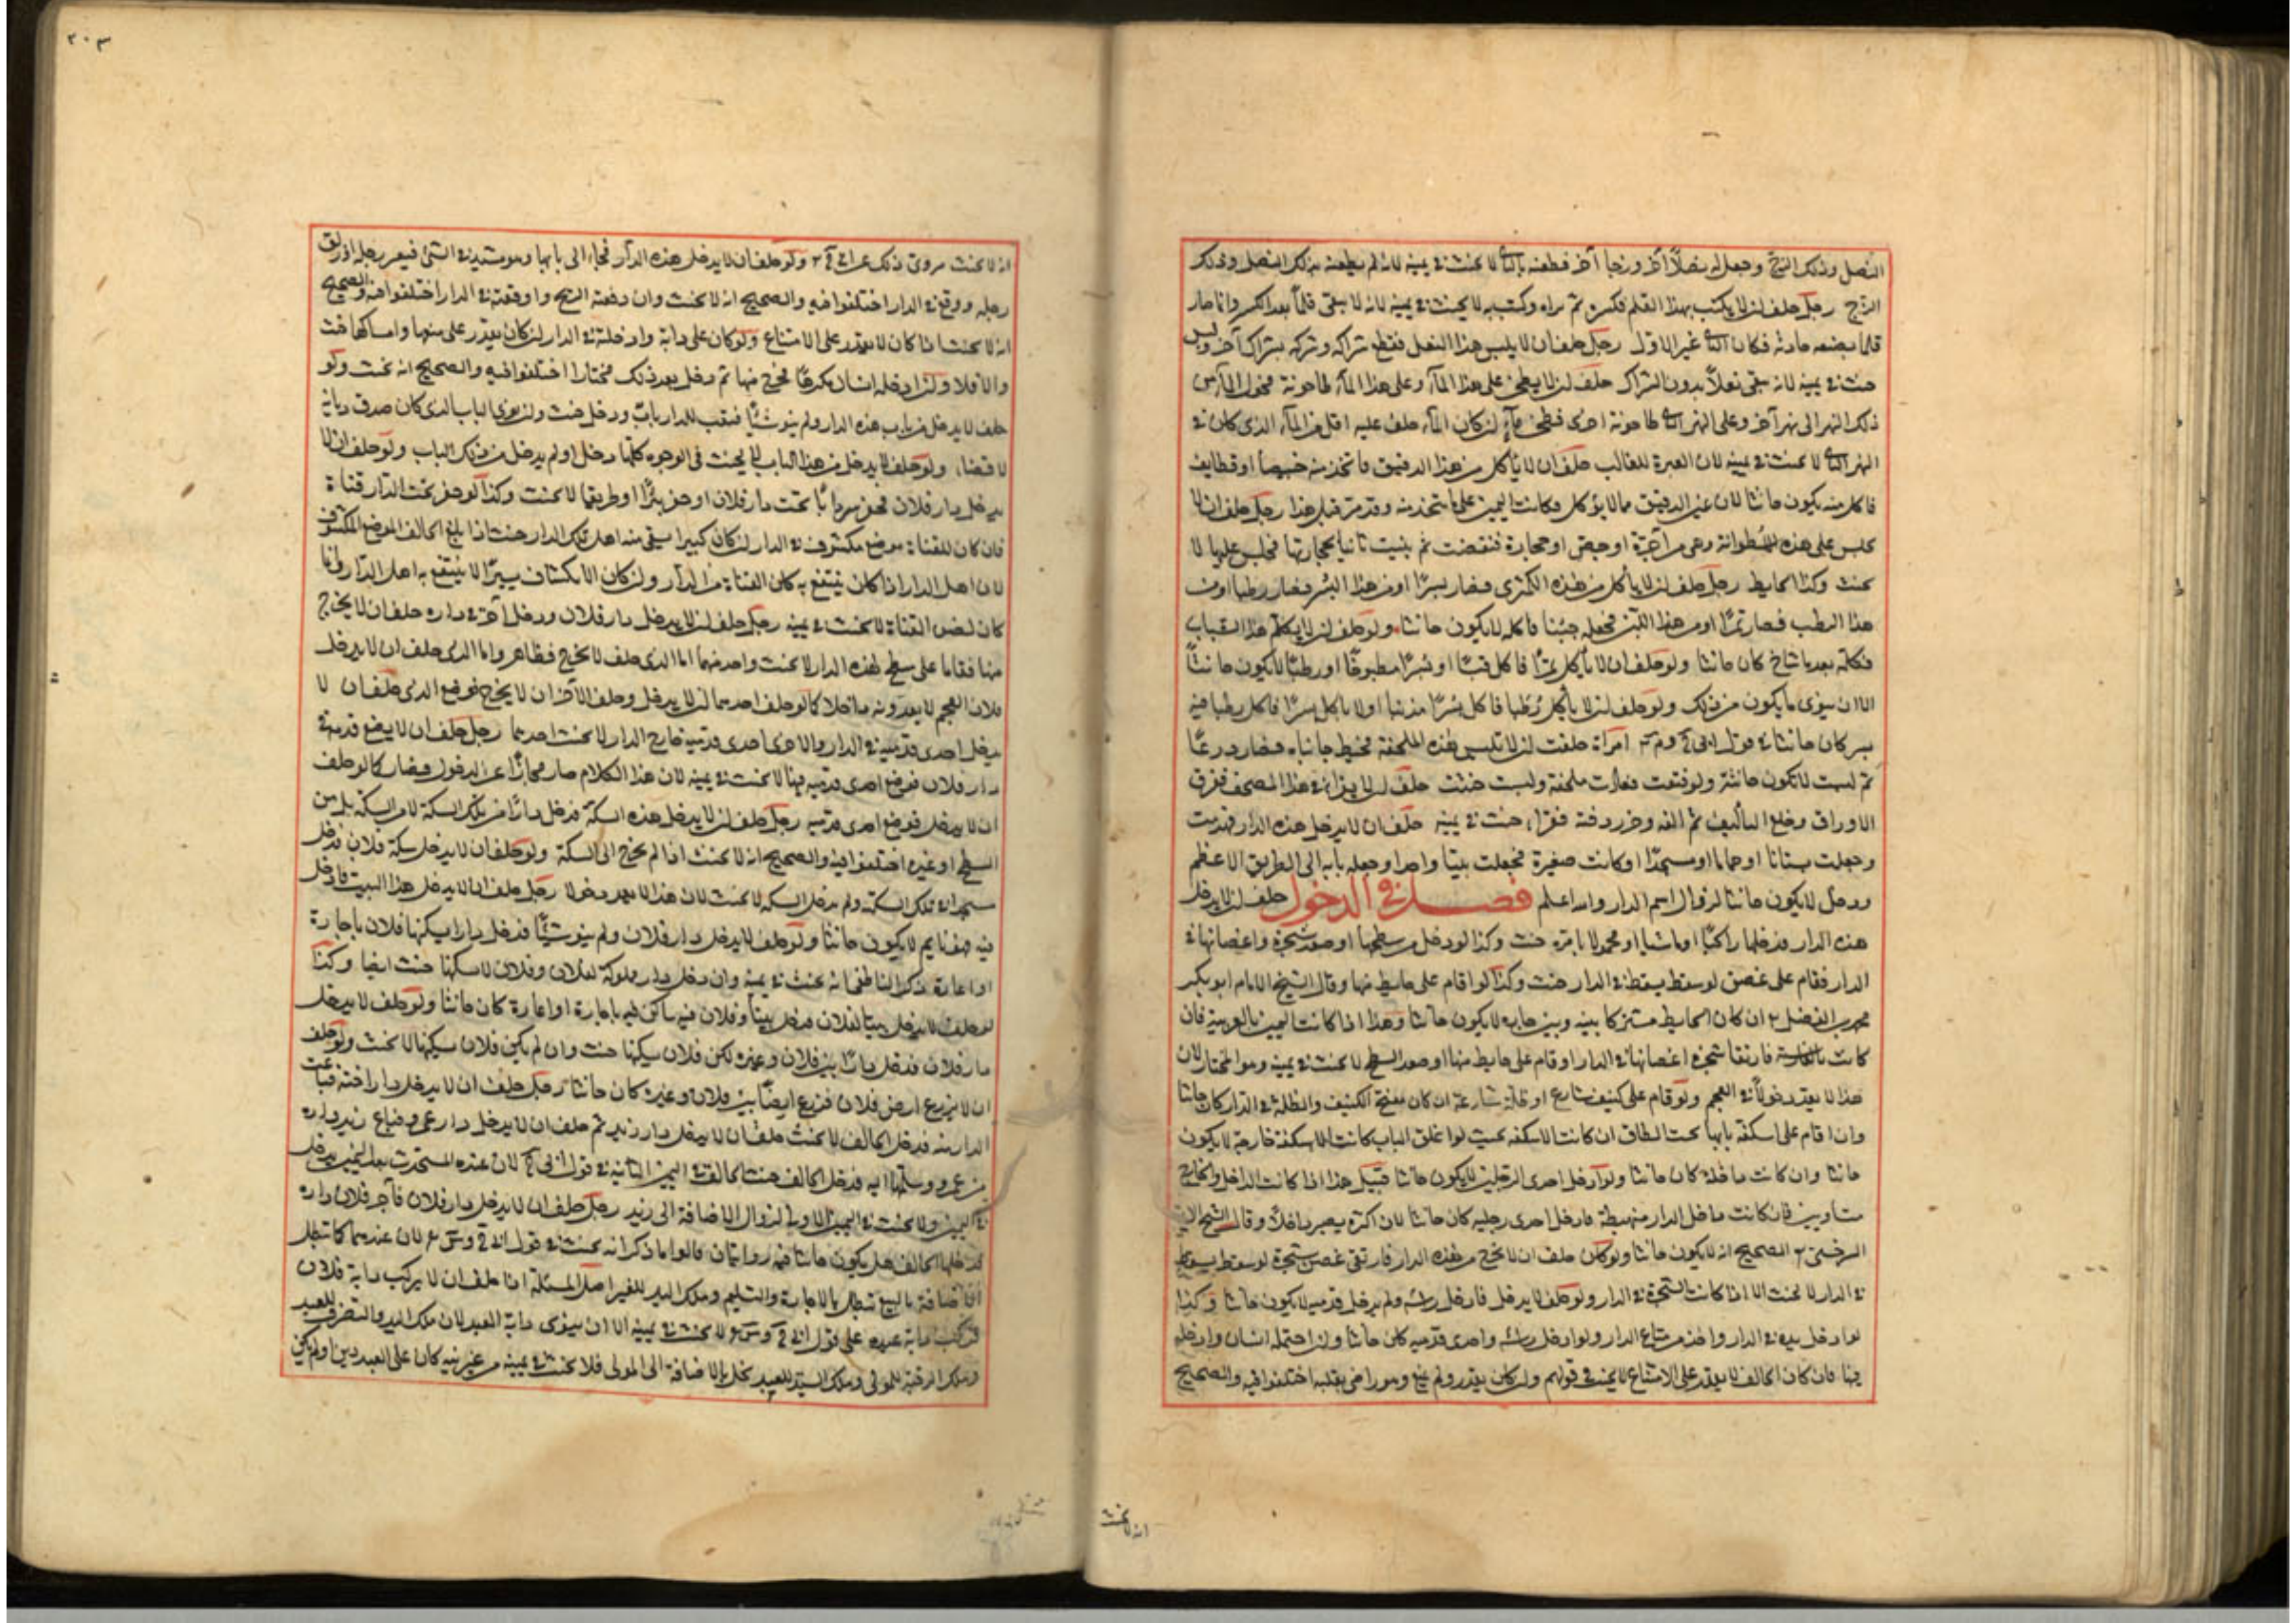 النصل وذلك الزج وجعل له نصلا آخر وزجا آخر فطعنه بالثاني لا يحنث في يمينه لانه لم يطعنه بذلك النصل وذلك
الزج رجل حلف ان لا يكتب بهذا القلم فكسره ثم براه وكتب به لا يحنث في يمينه لانه لا يبقى قلما بعد الكسر وانما صار
قلما بصنعه حادثة فكان الثاني غير الاول رجل حلف ان لا يلبس هذا النعل فقطع شراكه وشركه بشراك آخر ولبس
حنث في يمينه لانه يبقى نعلا بدون الشراك حلف ان لا يطحن على هذا المآء وعلى هذا المآء طاحونة فحول المآء من
ذلك النهر الى نهر آخر وعلى النهر الثاني طاحونة اخرى فطحن ان كان المآء حلف عليه اقل من المآء الذى كان في
النهر الثاني لا يحنث في يمينه لان العبرة للغالب حلف ان لا يأكل من هذا الدقيق فاتخذ منه خبيصا او قطايف
فاكل منه يكون حانثا لان عين الدقيق مما لا يؤكل فكانت اليمين على ما يتخذ منه وقد مر قبل هذا رجل حلف ان لا
يجلس على هذه الاسطوانة وهى من آجرة او جص او حجارة فنقضت ثم بنيت ثانيا بحجارتها فجلس عليها لا
يحنث وكذا الحايط رجل حلف ان لا يأكل من هذه الكفرى فصار بسرا او من هذا البسر فصار رطبا او من
هذا الرطب فصار تمرا او من هذا اللبن فجعله جبنا فاكله لا يكون حانثا ولو حلف ان لا يكلم هذا الشاب
فكلمه بعد ما شاخ كان حانثا ولو حلف ان لا يأكل تمرا فاكل قسبا او بسرا مطبوخا او رطبا لا يكون حانثا
الا ان ينوى ما يكون من ذلك ولو حلف ان لا يأكل رطبا فاكل بسرا مذنبا او لا ياكل بسرا فاكل رطبا فيه
بسر كان حانثا في قول ابى ح وم امرأة حلفت ان لا تلبس هذه الملحفة فخيط جانباه فصار درعا
ثم لبست لا تكون حانثة ولو فتقت فعادت ملحفة ولبست حنثت حلف ان لا يقرأ في هذا المصحف ففرق
الاوراق وخلع التأليف ثم الفه وخرز دفته فقرأ حنث في يمينه حلف ان لا يدخل هذه الدار فهدمت
وجعلت بستانا او حماما او مسجدا او كانت صغيرة فجعلت بيتا واحدا وجعل بابه الى الطريق الاعظم
ودخل لا يكون حانثا لزوال اسم الدار والله اعلم فصل في الدخول حلف ان لا يدخل
هذه الدار فدخلها راكبا او ماشيا او محمولا بامره حنث وكذا لو دخل من سطحها او صعد شجرة واغصانها في
الدار فقام على غصن لو سقط يسقط في الدار حنث وكذا لو اقام على حايط منها وقال الشيخ الامام ابو بكر
محمد بن الفضل ان كان الحايط مشتركا بينه وبين جاره لا يكون حانثا وهذا اذا كانت اليمين بالعربية فان
كانت بالفارسية فارتقا شجرة اغصانها في الدار او قام على حايط منها او صعد السطح لا يحنث في يمينه وهو المختار لان
هذا لا يعد دخولا في العجم ولو قام على كنيف شارع او ظلة شارعة ان كان مفتح الكنيف والظلة في الدار كان حانثا
وان اقام على اسكفة بابها تحت الطاق ان كانت الاسكفة بحيث لو اغلق الباب كانت الاسكفة خارجة لا يكون
حانثا وان كانت داخلة كان حانثا ولو ادخل احدى الرجلين لا يكون حانثا قيل هذا اذا كانت الداخل والخارج
متساويين فان كانت داخل الدار منهبطة فادخل احدى رجليه كان حانثا لان اكثره يصير داخلا وقال الشيخ الامام
السرخسي الصحيح انه لا يكون حانثا ولو كان حلف ان لا يخرج من هذه الدار فارتقى غصن شجرة لو سقط يسقط
في الدار لا يحنث الا اذا كانت الشجرة في الدار ولو حلف لا يدخل فادخل رأسه ولم يدخل قدميه لا يكون حانثا وكذا
لو ادخل يده في الدار واخذ من متاع الدار ولو ادخل رأسه واحدى قدميه كان حانثا وان احتمله انسان وادخله
فيها فان كان الحالف لا يقدر على الامتناع لا يحنث في قولهم وان كان يقدر ولم يمنع وهو راض بقلبه اختلفوا فيه والصحيح
انه لا يحنث
٢٠٣
انه لا يحنث مروى ذلك عن ولو حلف ان لا يدخل هذه الدار فجاء الى بابها وهو مشتد في المشي فعثر رجله او زلق
رجله ووقع في الدار اختلفوا فيه والصحيح انه لا يحنث وان دفعته الريح واوقعته في الدار اختلفوا فيه والصحيح
انه لا يحنث اذا كان لا يقدر على الامتناع ولو كان على دابة وادخلته في الدار ان كان يقدر على منعها وامساكها حنث
والا فلا وان ادخله انسان مكرها فخرج منها ثم دخل بعد ذلك مختارا اختلفوا فيه والصحيح انه يحنث ولو
حلف لا يدخل من باب هذه الدار ولم ينو شيئا فنقب للدار بابا ودخل حنث وان نوى الباب الذى كان صدق ديانة
لا قضاء ولو حلف لا يدخل من هذا الباب لا يحنث في الوجوه كلها دخل او لم يدخل من ذلك الباب ولو حلف ان لا
يدخل دار فلان فحفر سردابا تحت دار فلان او حفر بئرا او طريقا لا يحنث وكذا لو حفر تحت الدار قناة
فان كان للقناة موضع مكشوف في الدار ان كان كبيرا يستقى منه اهل تلك الدار حنث اذا بلغ الحالف الموضع المكشوف
لان اهل الدار اذا كان ينتفع به كان القناة من الدار وان كان الانكشاف يسيرا لا ينتفع به اهل الدار وانما
كان لضوء القناة لا يحنث في يمينه رجل حلف ان لا يدخل دار فلان ودخل آخر في داره حلف ان لا يخرج
منها فقاما على سطح هذه الدار لا يحنث واحد منهما اما الذى حلف لا يخرج فظاهر واما الذى حلف ان لا يدخل
فلان العجم لا يعدونه داخلا كما لو حلف احدهما ان لا يدخل وحلف الآخر ان لا يخرج فوضع الذى حلف ان لا
يدخل احدى قدميه في الدار والاخرى احدى قدميه خارج الدار لا يحنث احدهما رجل حلف ان لا يضع قدميه في
دار فلان فوضع احدى قدميه فيها لا يحنث في يمينه لان هذا الكلام صار مجازا عن الدخول فصار كما لو حلف
ان لا يدخل فوضع احدى قدميه رجل حلف ان لا يدخل هذه السكة فدخل دارا من تلك السكة لا من السكة بل من
السطح او غيره اختلفوا فيه والصحيح انه لا يحنث اذا لم يخرج الى السكة ولو حلف ان لا يدخل سكة فلان فدخل
مسجدا في تلك السكة ولم يدخل السكة لا يحنث لان هذا لا يعد دخولا رجل حلف ان لا يدخل هذا البيت فادخل
فيه وهو نايم لا يكون حانثا ولو حلف لا يدخل دار فلان ولم ينو شيئا فدخل دارا يسكنها فلان باجارة
او اعارة ذكر الناطفي انه يحنث في يمينه وان دخل دارا مملوكة لفلان وفلان لا يسكنها حنث ايضا وكذا
لو حلف لا يدخل بيتا لفلان فدخل بيتا وفلان فيه ساكن فيه باجارة او اعارة كان حانثا ولو حلف لا يدخل
دار فلان فدخل دارا بين فلان وغيره لكن فلان يسكنها حنث وان لم يكن فلان يسكنها لا يحنث ولو حلف
ان لا يزرع ارض فلان فزرع ارضا بين فلان وغيره كان حانثا رجل حلف ان لا يدخل دار اخته فباعت
الدار منه فدخل الحالف لا يحنث حلف ان لا يدخل دار زيد ثم حلف ان لا يدخل دار عمرو فباع زيد داره
من عمرو وسلمها اليه فدخل الحالف حنث الحالف في اليمين الثانية في قول ابى ح لان عنده المستحدث بعد اليمين يدخل
في اليمين ولا يحنث في اليمين الاولى لزوال الاضافة الى زيد رجل حلف ان لا يدخل دار فلان فآجر فلان داره
فدخلها الحالف هل يكون حانثا فيه روايتان قالوا ما ذكر انه لا يحنث في قول لان عندهما كما تبطل
الاضافة بالبيع تبطل بالاجارة والتسليم وملك اليد للغير اصل المسئلة اذا حلف ان لا يركب دابة فلان
فركب دابة عبده على قول لا يحنث في يمينه الا ان ينوى دابة العبد لان ملك اليد والتصرف للعبد
وملك الرقبة للمولى وملك السيد للعبد يخل بالاضافة الى المولى فلا يحنث في يمينه من غير نية كان على العبد دين او لم يكن